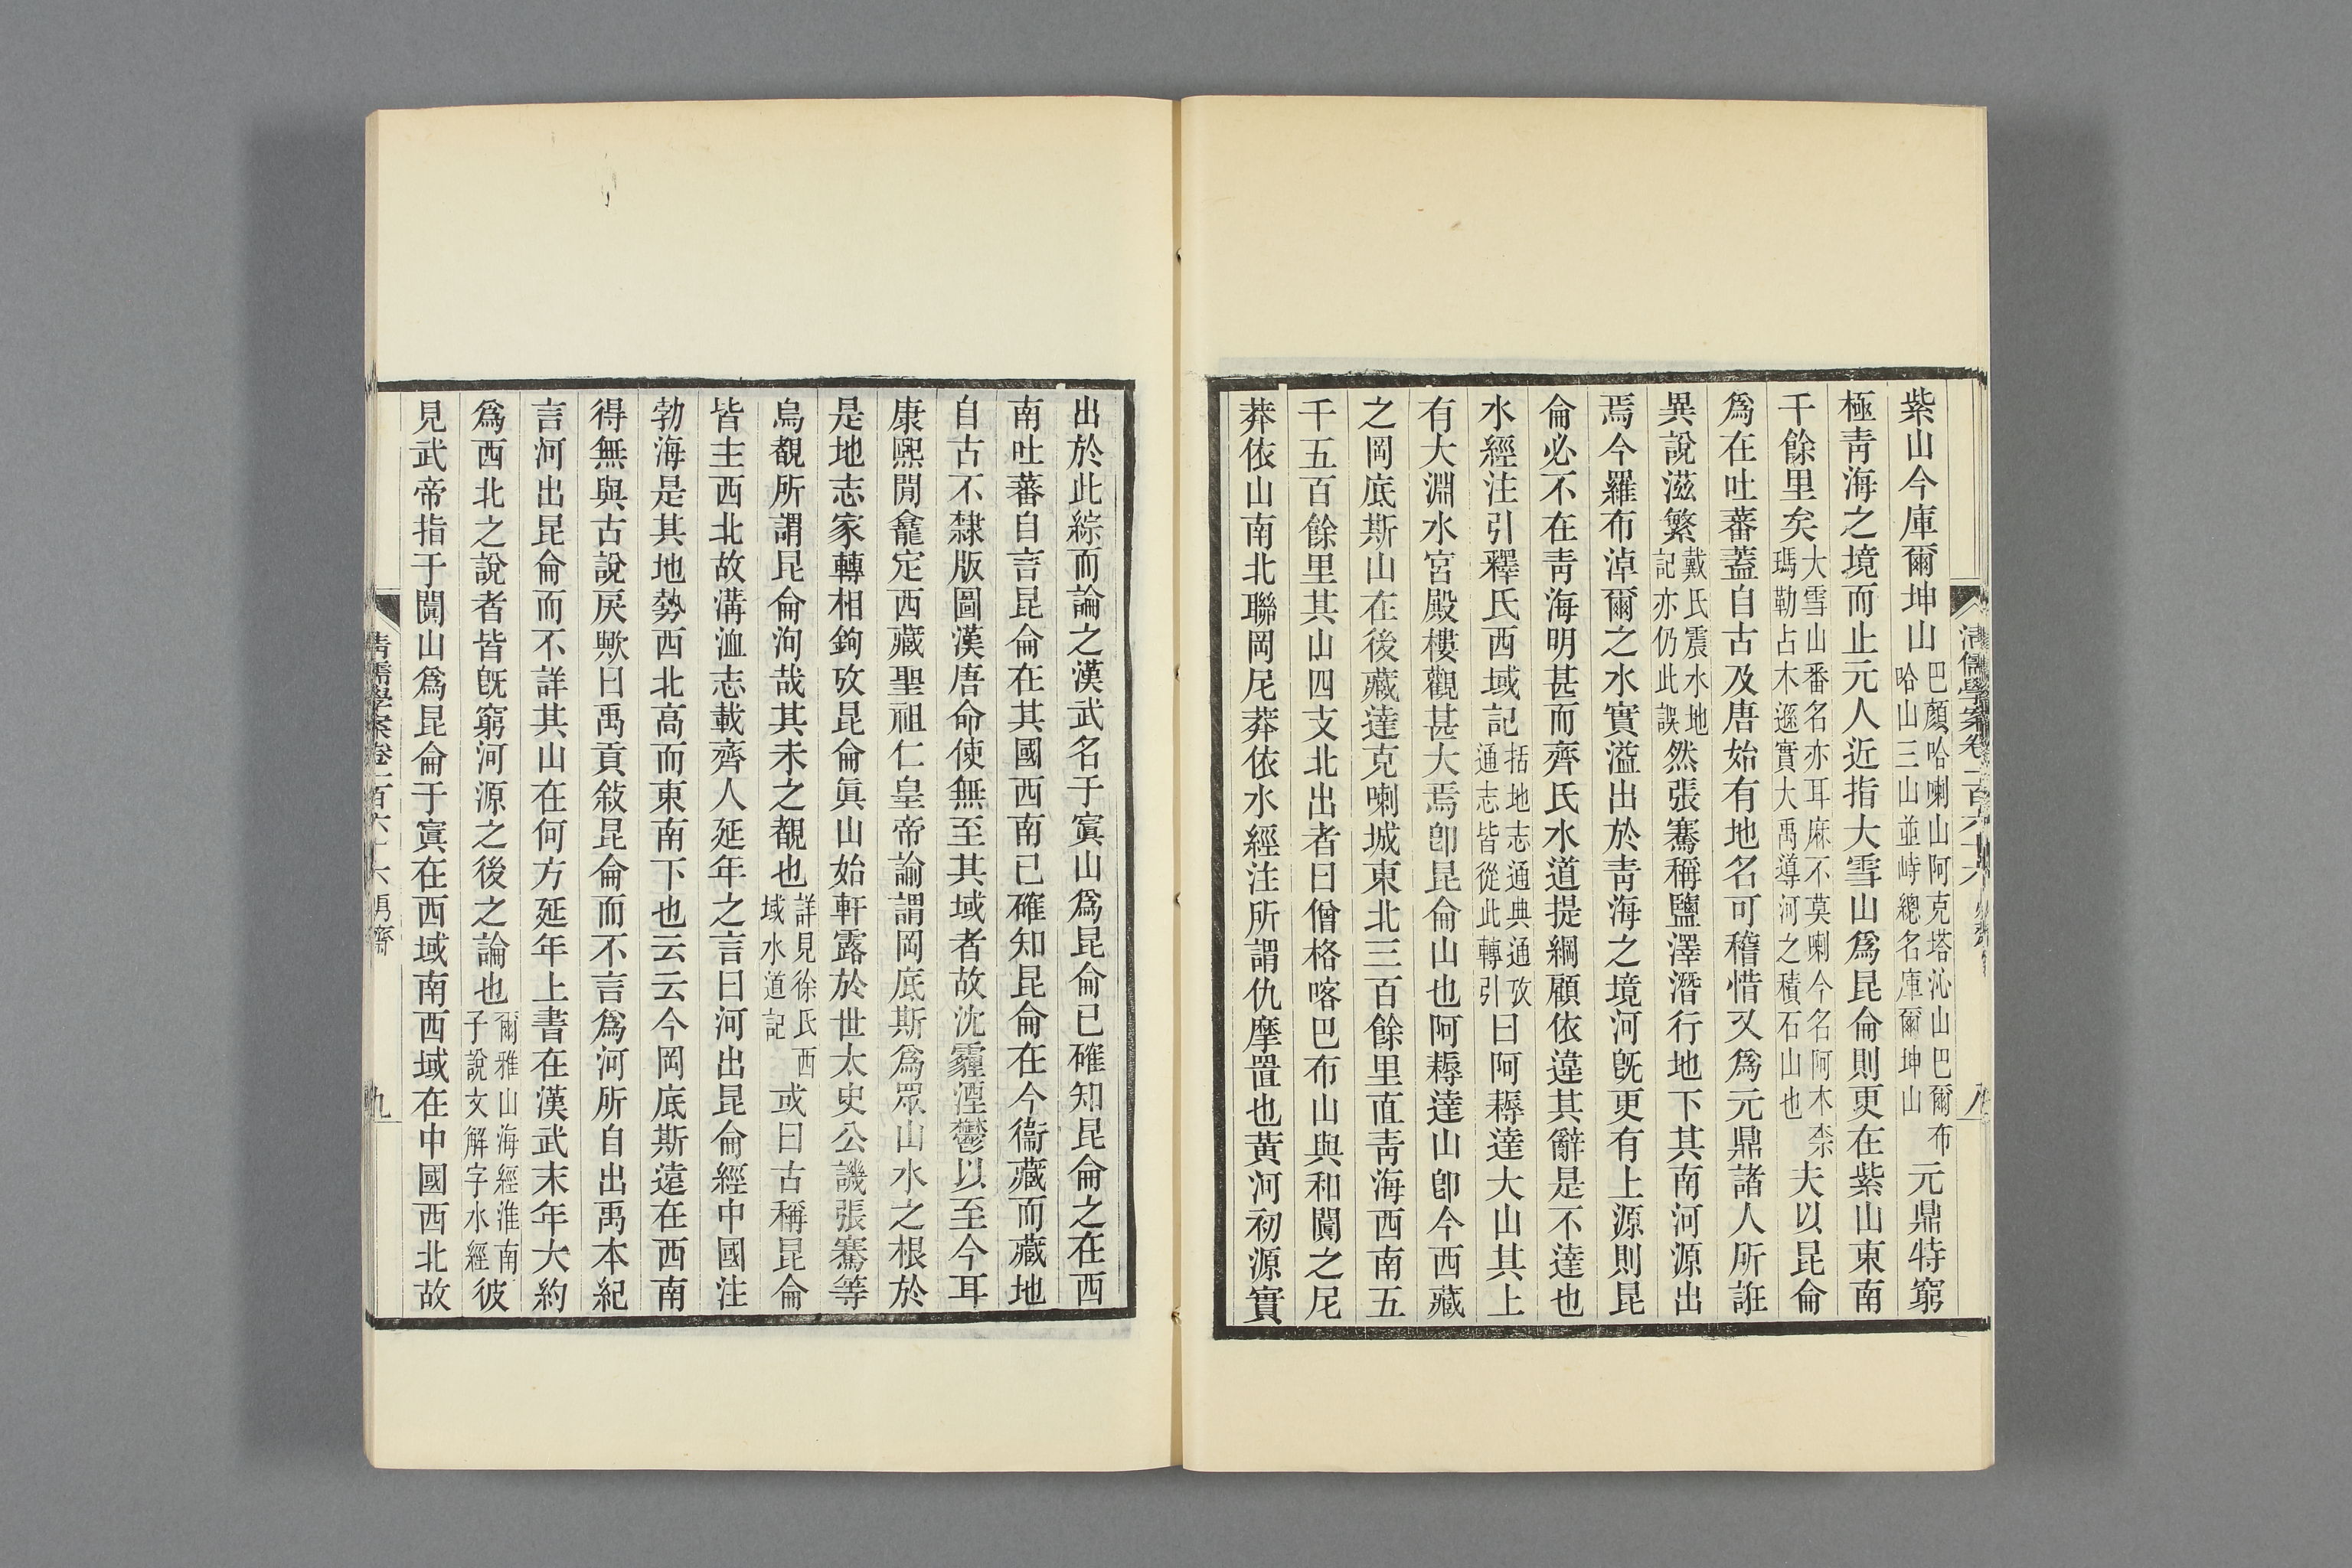 紫山今庫爾坤山巴顏哈喇山阿克塔沁山巴爾布哈山三山並峙總名庫爾坤山元鼎特窮
極靑海之境而止元人近指大雪山爲昆侖則更在紫山東南
千餘里矣大雪山番名亦耳麻不莫喇今名阿木柰瑪勒占木遜實大禹導河之積石山也夫以昆侖
爲在吐蕃蓋自古及唐始有地名可稽惜又爲元鼎諸人所誑
異說滋繁戴氏震水地記亦仍此誤然張騫稱鹽澤潛行地下其南河源出
焉今羅布淖爾之水實溢出於靑海之境河旣更有上源則昆
侖必不在靑海明甚而齊氏水道提綱顧依違其辭是不達也
水經注引釋氏西域記括地志通典通攷通志皆從此轉引曰阿耨達大山其上
有大淵水宮殿樓觀甚大焉卽昆侖山也阿耨達山卽今西藏
之岡底斯山在後藏達克喇城東北三百餘里直靑海西南五
千五百餘里其山四支北出者曰僧格喀巴布山與和闐之尼
莽依山南北聯岡尼莽依水經注所謂仇摩置也黃河初源實
清儒學案卷一百六十六
八
出於此綜而論之漢武名于窴山爲昆侖已確知昆侖之在西
南吐蕃自言昆侖在其國西南已確知昆侖在今衞藏而藏地
自古不隸版圖漢唐命使無至其域者故沈霾湮鬱以至今耳
康熙閒龕定西藏聖祖仁皇帝諭謂岡底斯爲眾山水之根於
是地志家轉相鉤攷昆侖眞山始軒露於世太史公譏張騫等
烏覩所謂昆侖洵哉其未之覩也詳見徐氏西域水道記或曰古稱昆侖
皆主西北故溝洫志載齊人延年之言曰河出昆侖經中國注
勃海是其地勢西北高而東南下也云云今岡底斯遠在西南
得無與古說戾歟曰禹貢敍昆侖而不言爲河所自出禹本紀
言河出昆侖而不詳其山在何方延年上書在漢武末年大約
爲西北之說者皆旣窮河源之後之論也爾雅山海經淮南子說文解字水經彼
見武帝指于闐山爲昆侖于窴在西域南西域在中國西北故
清儒學案卷一百六十六
九